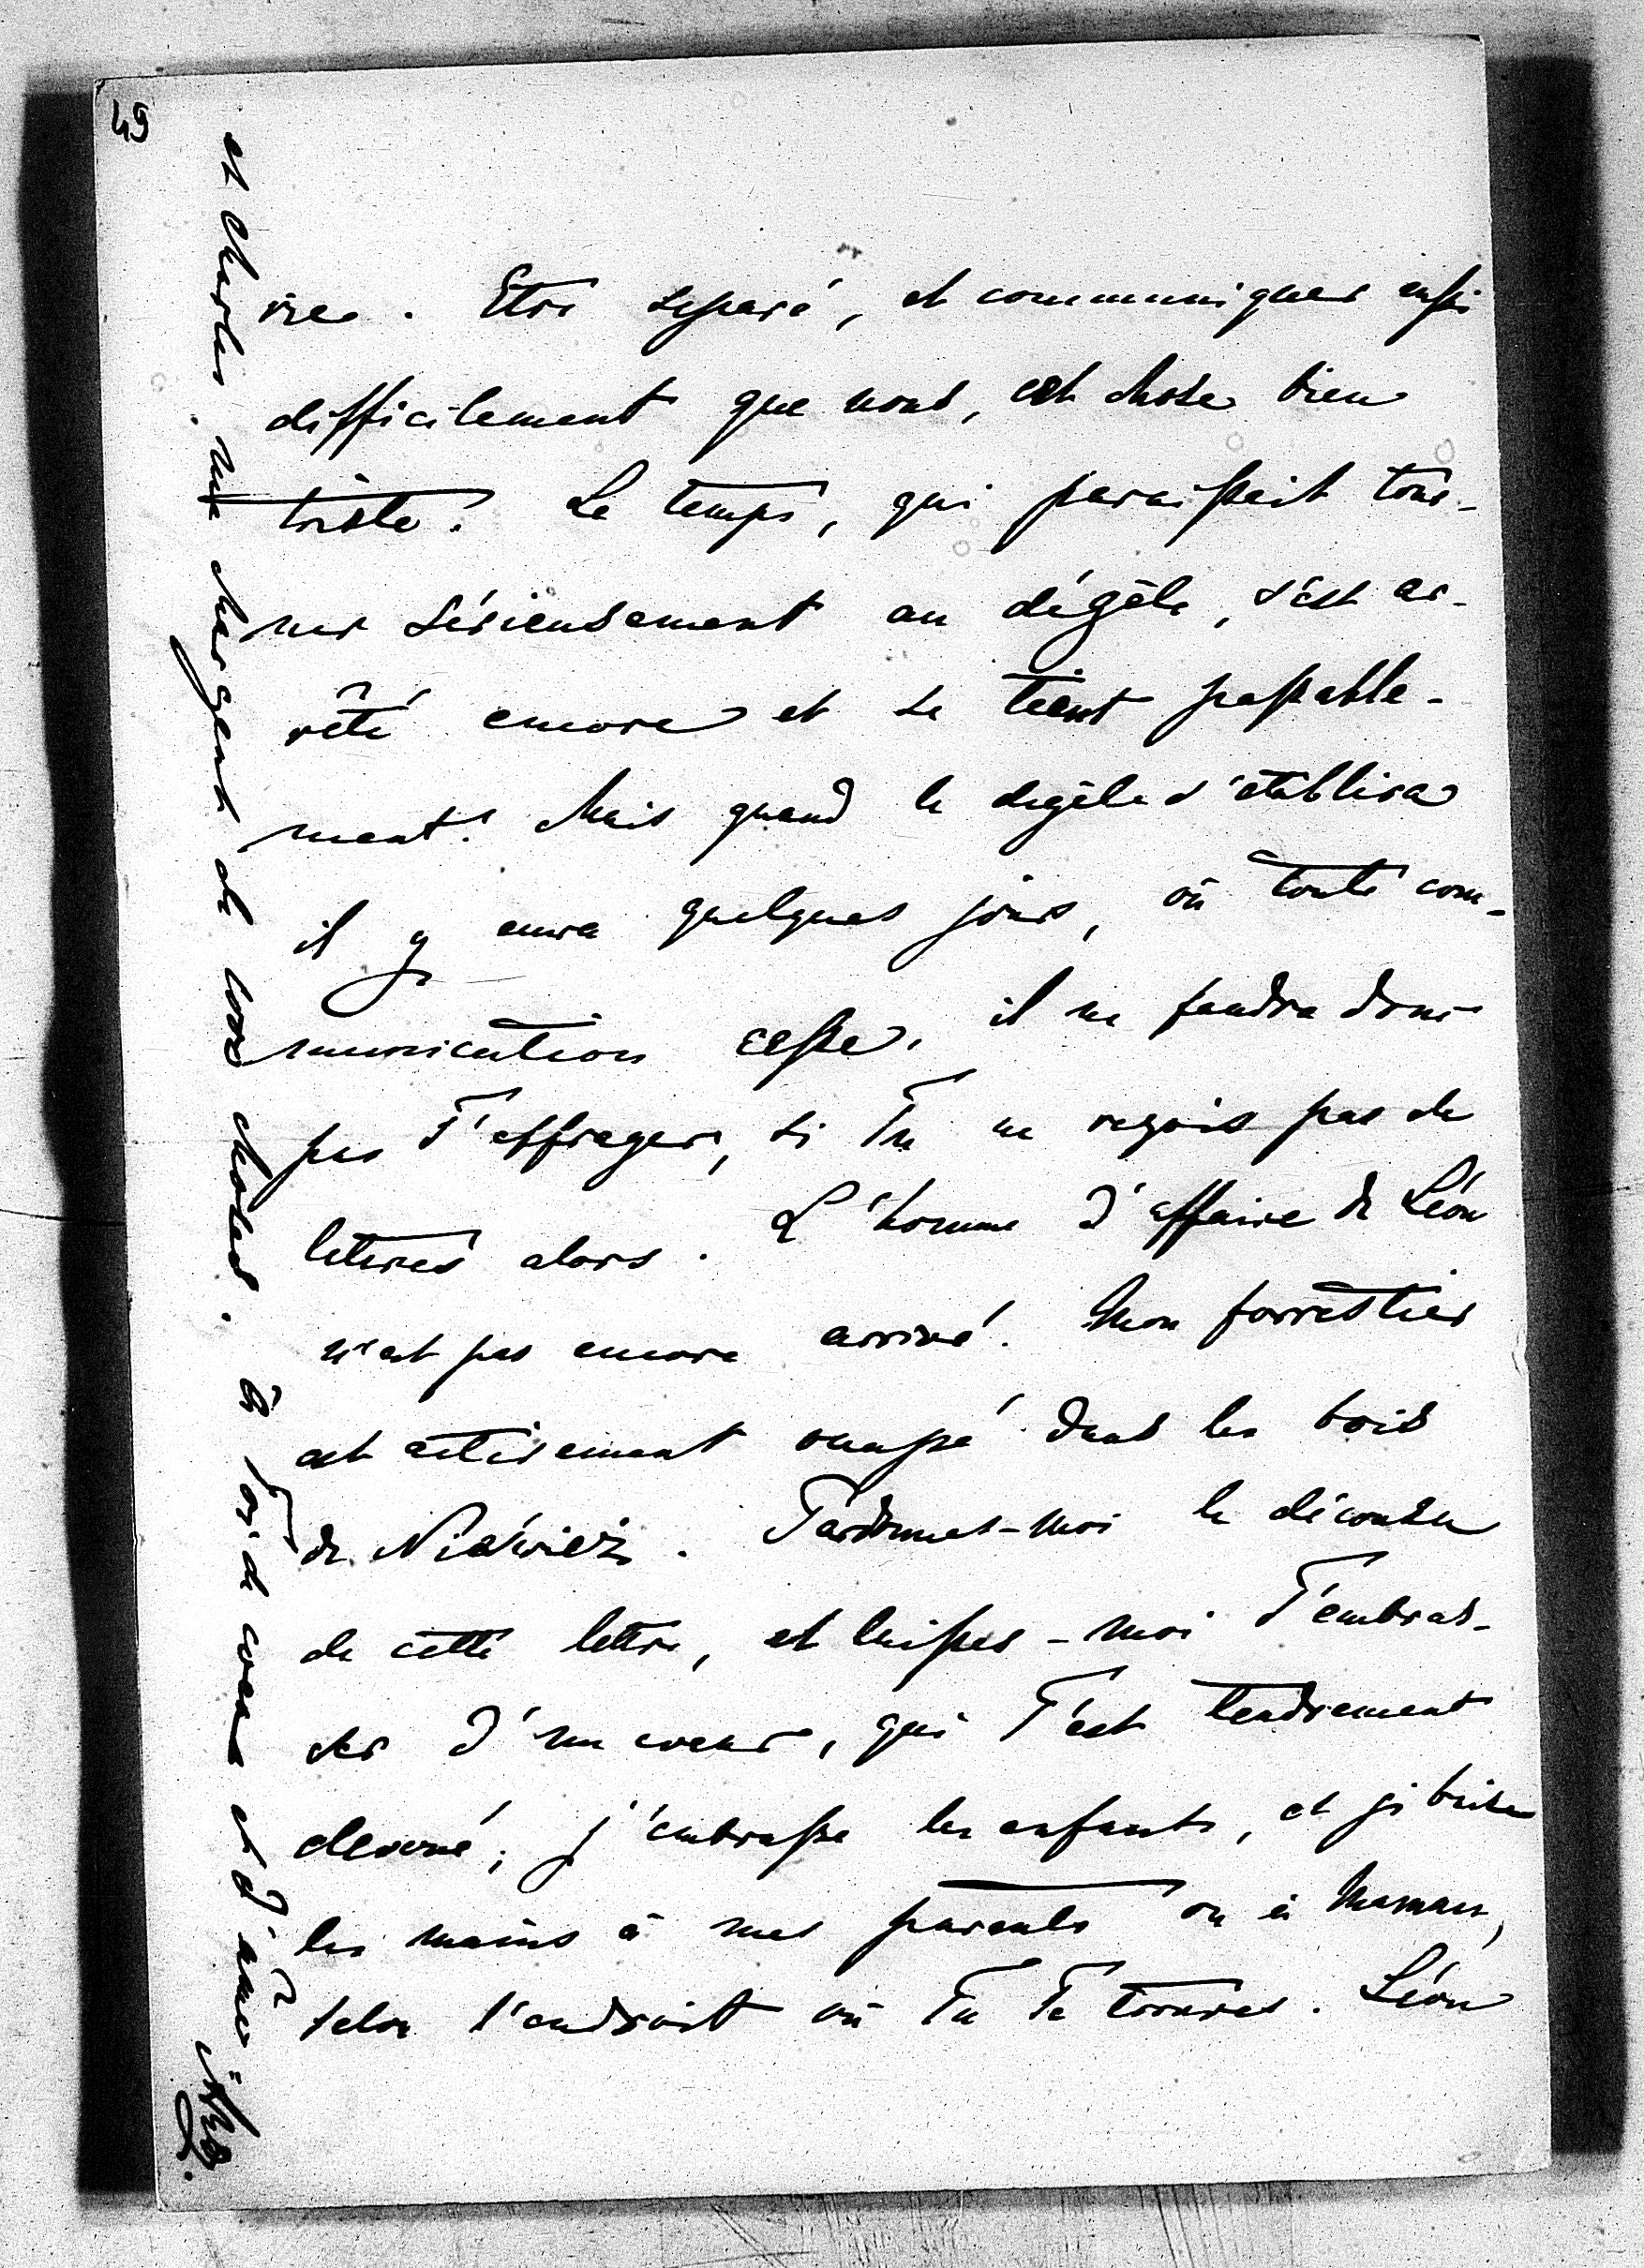 49
vre. Etre separé, et communiquer aussi
difficilement que nous, est chose bien
triste. Le temps, qui paraissait tour-
ner sérieusement au dégèle, s'est ar-
rêté encore et se tient passable-
ment. Mais quand le degèle s'établira
il y aura quelques jours, où toute com-
munication cesse, il ne faudra donc
pas T'effrayer, si Tu ne reçois pas de
lettres alors. L'homme d'affaire de Léon
n'est pas encore arrivé. Mon forrestier
est activement occupé dans les bois
de Nieśwież. Pardonnes-moi le décousu
de cette lettre, et laisses-moi T'embras-
ser d'un coeur, qui T'est tendrement
devoué, j'embrasse les enfants, et je baise
les mains à mes parents ou à Maman,
selon l'endroit où Tu Te trouves. Léon
et Charles me chargent de leurs choses. à Toi de coeur et d'âme